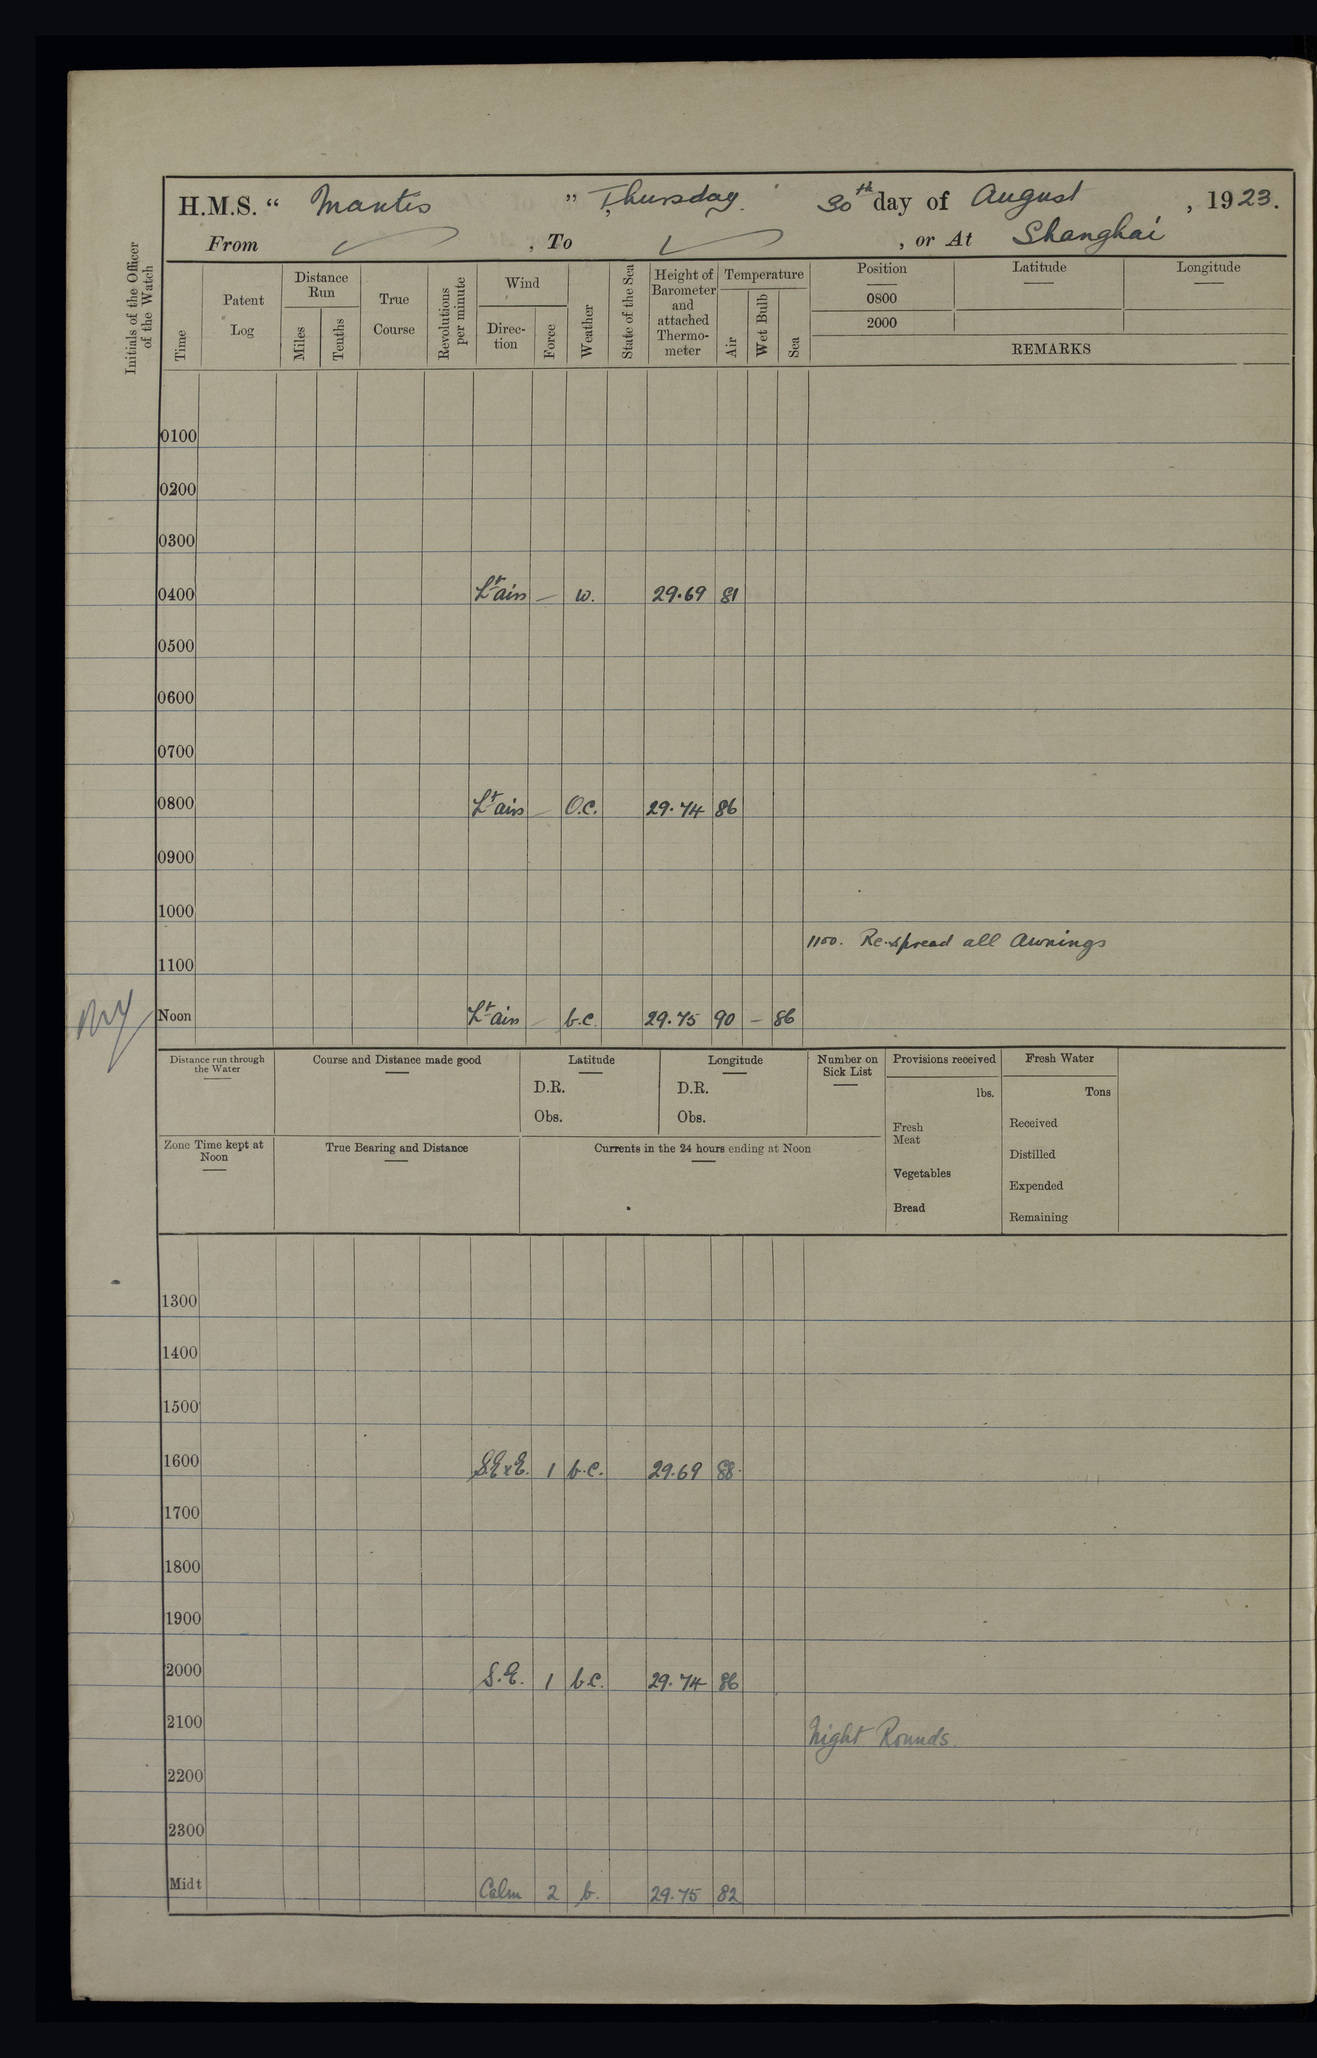 H.M.S. “ Mantis ” Thursday. 30th day of August , 1923.
From , To , or At Shanghai
Initials of the Officer of the Watch
Time
Patent Log
Distance Run
Miles
Tenths
True Course
Revolutions per minute
Wind
Direc-tion
Force
Weather
State of the Sea
Height of Barometer and attached Thermo-meter
Temperature
Air
Wet Bulb
Sea
Position Latitude Longitude
0800
2000
REMARKS
0100
0200
0300
0400 Lt airs — w. 29.69 81
0500
0600
0700
0800 Lt airs — O.C. 29.74 86
0900
1000
1100. Re-spread all Awnings
1100
Noon Lt airs — b.c. 29.75 90 — 86
Distance run through the Water
Course and Distance made good
Latitude
D.R.
Obs.
Longitude
D.R.
Obs.
Number on Sick List
Provisions received
lbs.
Fresh Meat
Vegetables
Bread
Fresh Water
Tons
Received
Distilled
Expended
Remaining
Zone Time kept at Noon
True Bearing and Distance
Currents in the 24 hours ending at Noon
1300
1400
1500
1600 S.E x E. 1 b.c. 29.69 88.
1700
1800
1900
2000 S.E. 1 b.c. 29.74 86
2100 Night Rounds.
2200
2300
Midt Calm 2 b. 29.75 82